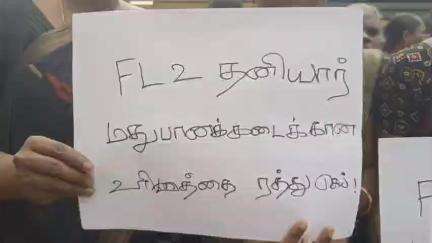 FL2 தனியார்
மதுபானக்கடைக்கான
உரிமத்தை ரத்து செய்!
F